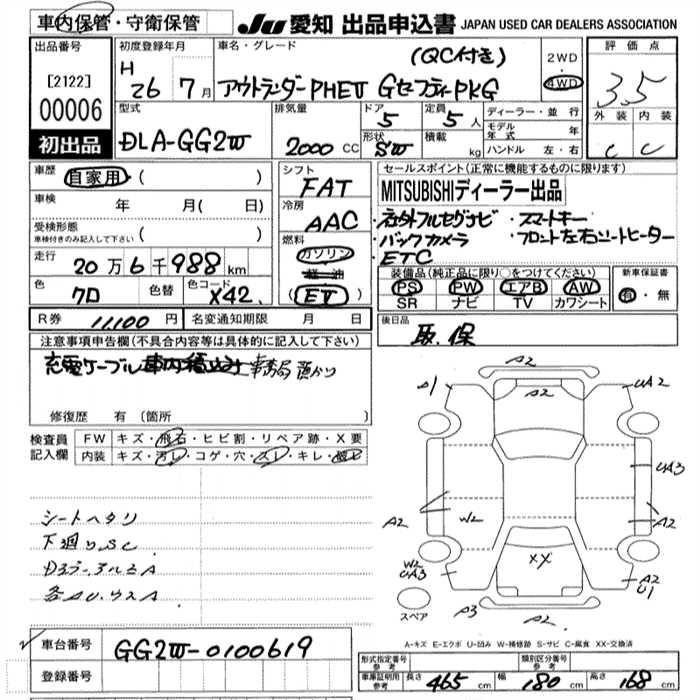 車内保管・守衛保管 JU 愛知 出品申込書 JAPAN USED CAR DEALERS ASSOCIATION
出品番号 [2122] 00006 初出品
初度登録年月 H 26 7月
車名・グレード (QC付き)
アウトランダーPHEV GセーフティPKG
2WD 4WD
評価点 3.5
外装 内装
C C
型式 DLA-GG2W
排気量 2000 CC
ドア 5 定員 5人
形状 SW 積載 kg
ディーラー・並行
モデル年式 年
ハンドル 左・右
車歴 自家用 ( )
車検 年 月( 日)
受検形態 車検付きのみ記入して下さい ( )
走行 20万6千988km
色 クロ 色替 色コード X42
シフト FAT
冷房 AAC
燃料 ガソリン 軽油 (EV)
セールスポイント(正常に機能するものに限ります)
MITSUBISHIディーラー出品
・社外フルセグナビ ・スマートキー
・バックカメラ ・フロント左右シートヒーター
・ETC
装備品(純正品に限り○をつけてください)
PS PW エアB AW
SR ナビ TV カワシート
新車保証書 有・無
R券 11,100円 名変通知期限 月 日
後日品 取.保
注意事項申告欄(不具合内容等は具体的に記入して下さい)
充電ケーブル車内積込み事務局預かり
修復歴 有(箇所 )
検査員記入欄 FW キズ・飛石・ヒビ割・リペア跡・X要
内装 キズ・汚レ・コゲ・穴・スレ・キレ・
シートヘタリ
下廻りSC
各AU.ウスA
A2
A1 A2 UA2
UA3
A2 W2 A2
W2 UA3 XX A2 U1
スペア A3 A2
A-キズ E-エクボ U-凹み W-補修跡 S-サビ C-腐食 XX-交換済
車台番号 GG2W-0100619
登録番号
形式指定番号 参考 類別区分番号 参考
車庫証明用 参考 長さ 465cm 幅 180cm 高さ 168cm